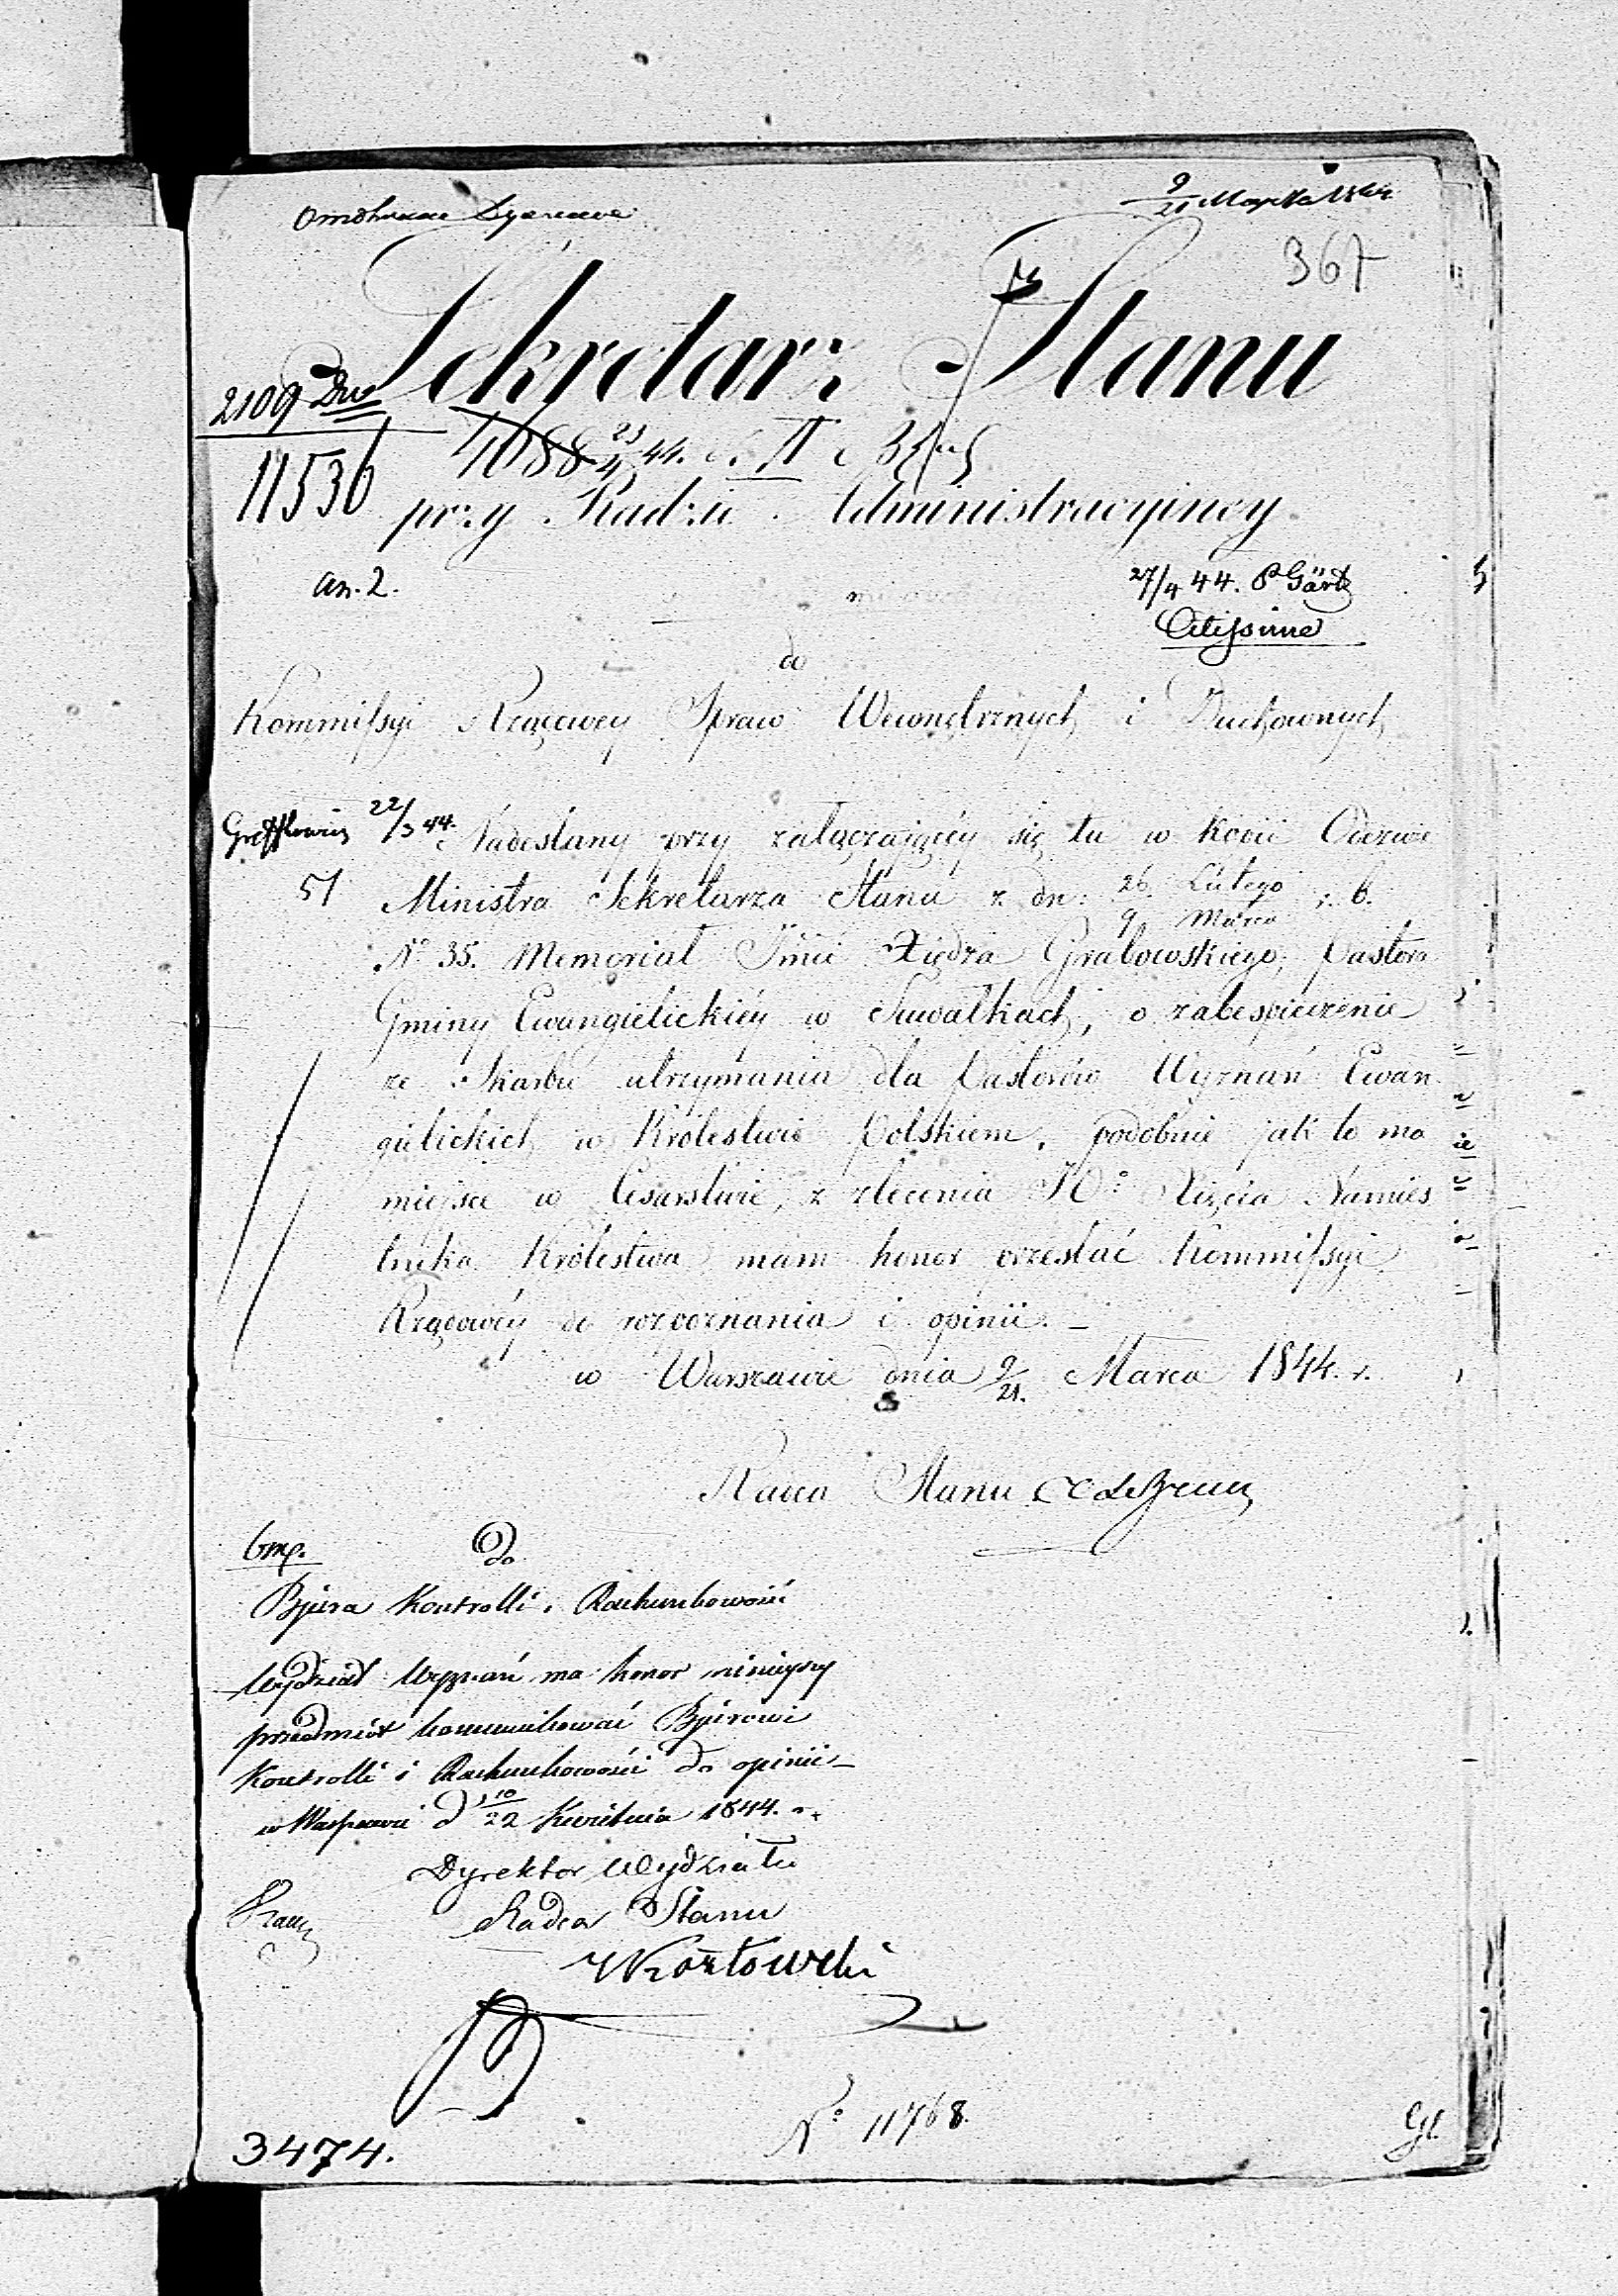 9/21 Марта 1844
367
Sekretarz Stanu
2109 Dw
11536
4088 23/4 44.
przy Radzie Administracyjney
an. 2.
27/4 44. P Gärtz
Citissime
do
Kommissyi Rządowey Spraw Wewnętrznych i Duchownych
22/3 44. Nadesłany przy załączającéy się tu w kopii Odezwie
51
Ministra Sekretarza Stanu z dn: 26 Lutego / 9 Marca r. b.
No 35. Memoriał Jmci Xiędza Grabowskiego, Pastora
Gminy Ewangielickiéy w Suwałkach, o zabespieczenie
ze Skarbu utrzymania dla Pastorów Wyznań Ewan
gielickich w Królestwie Polskiem, podobnie jak to ma
miejsce w Cesarstwie, z zlecenia JO: Xięcia Namies
tnika Królestwa mam honor przesłać Kommissyi
Rządowéy do rozpoznania i opinii. _
w Warszawie dnia 9/21. Marca 1844. r.
Radca Stanu
Do
Bjura Kontrolli i Rachunkowości
Wydział Wyznań ma honor ninieyszy
przedmiot kommunikować Bjórowi
Kontrolli i Rachunkowości do opinii _
w Warszawie d 10/22 Kwietnia 1844. r.
Dyrektor Wydziału
Radca Stanu
Kozłowski
No 11768.
3474.